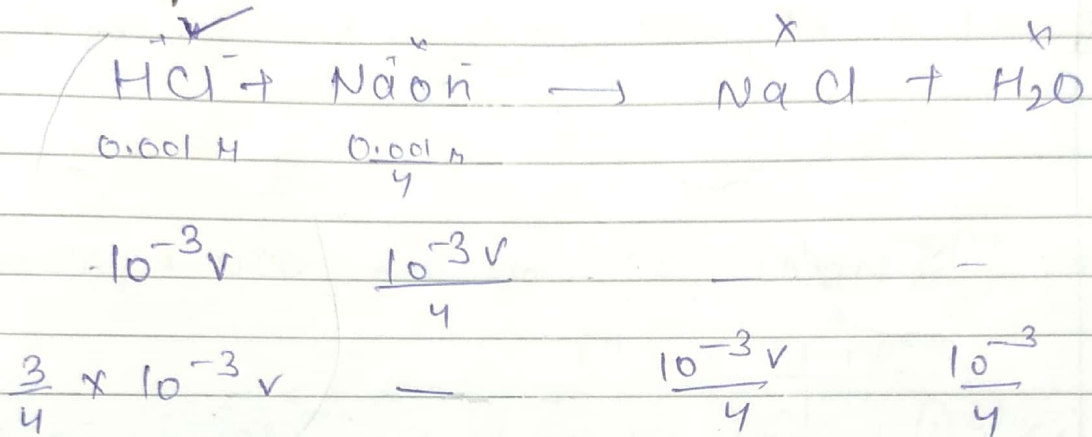 HCl + NaOH → NaCl + H₂O
0.001 M 0.001 M/4
10⁻³ v 10⁻³ v/4 — —
3/4 × 10⁻³ v — 10⁻³ v/4 10⁻³/4